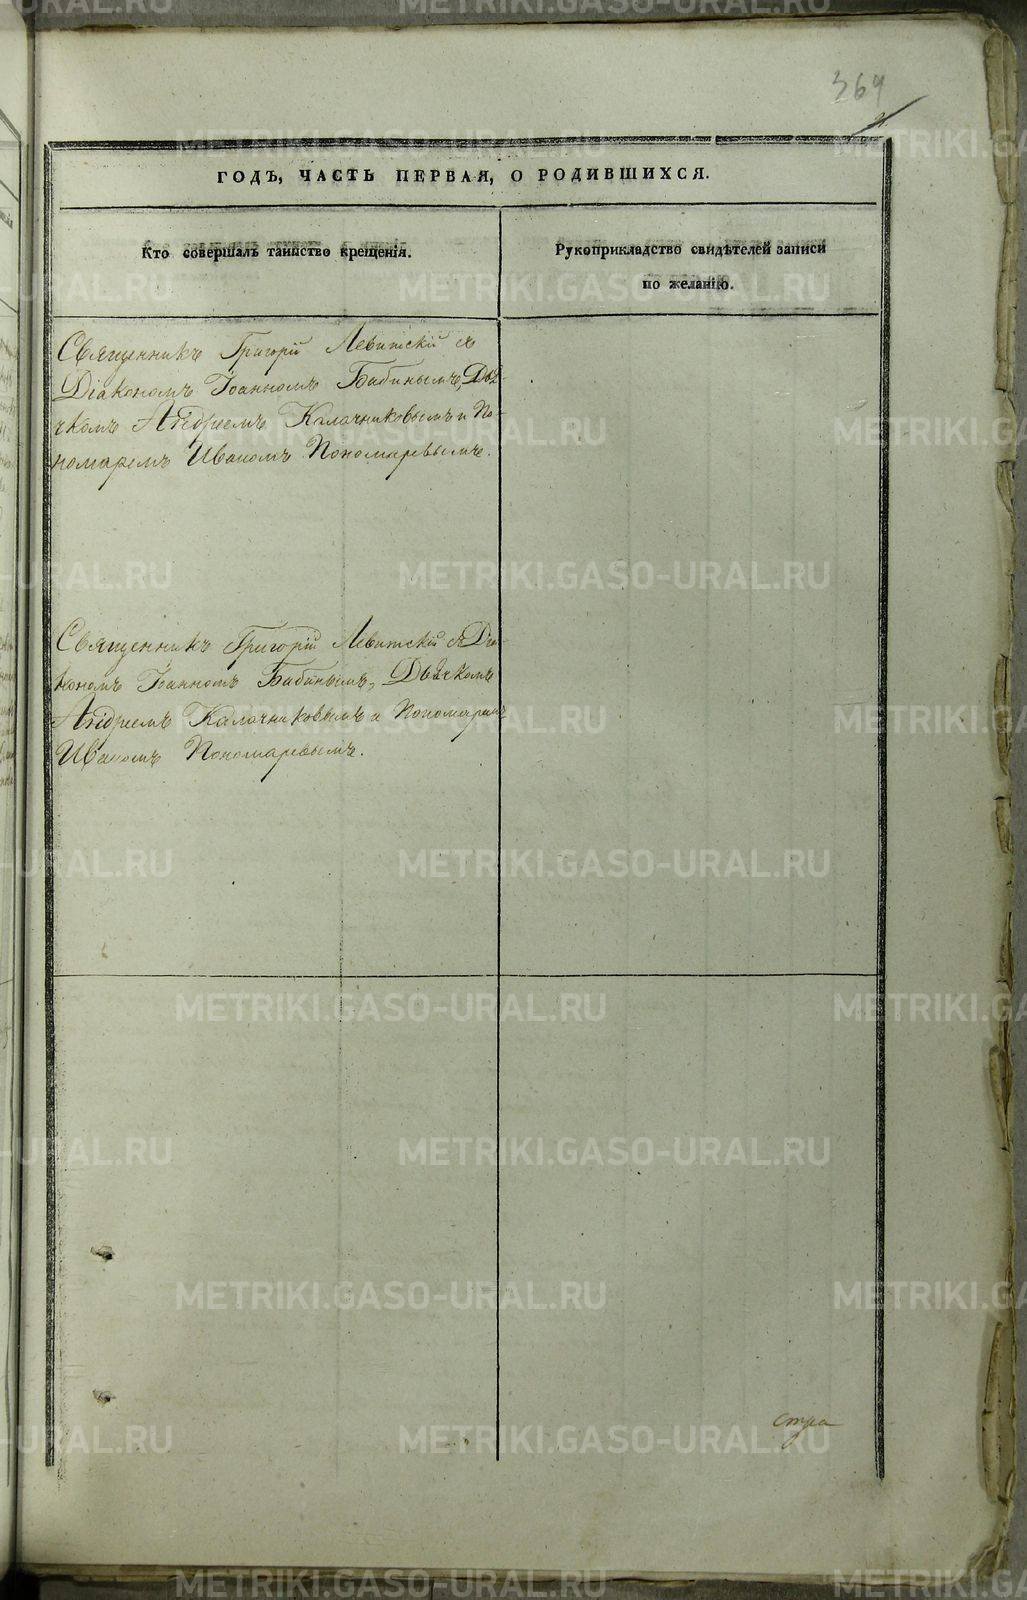 364
ГОДЪ, ЧАСТЬ ПЕРВАЯ, О РОДИВШИХСЯ.
Кто совершалъ таинство крещенія.
Рукоприкладство свидѣтелей записи
по желанію.
Священникъ Григорій Левитскій съ
Діакономъ Іоанномъ Бабинымъ, Дья-
чкомъ Андреемъ Калачниковымъ и По-
номаремъ Иваномъ Пономаревымъ.
Священникъ Григорій Левитскій съ Діа-
кономъ Іоанномъ Бабинымъ, Дьячкомъ
Андреемъ Калачниковымъ и Пономаремъ
Иваномъ Пономаревымъ.
METRIKI.GASO-URAL.RU